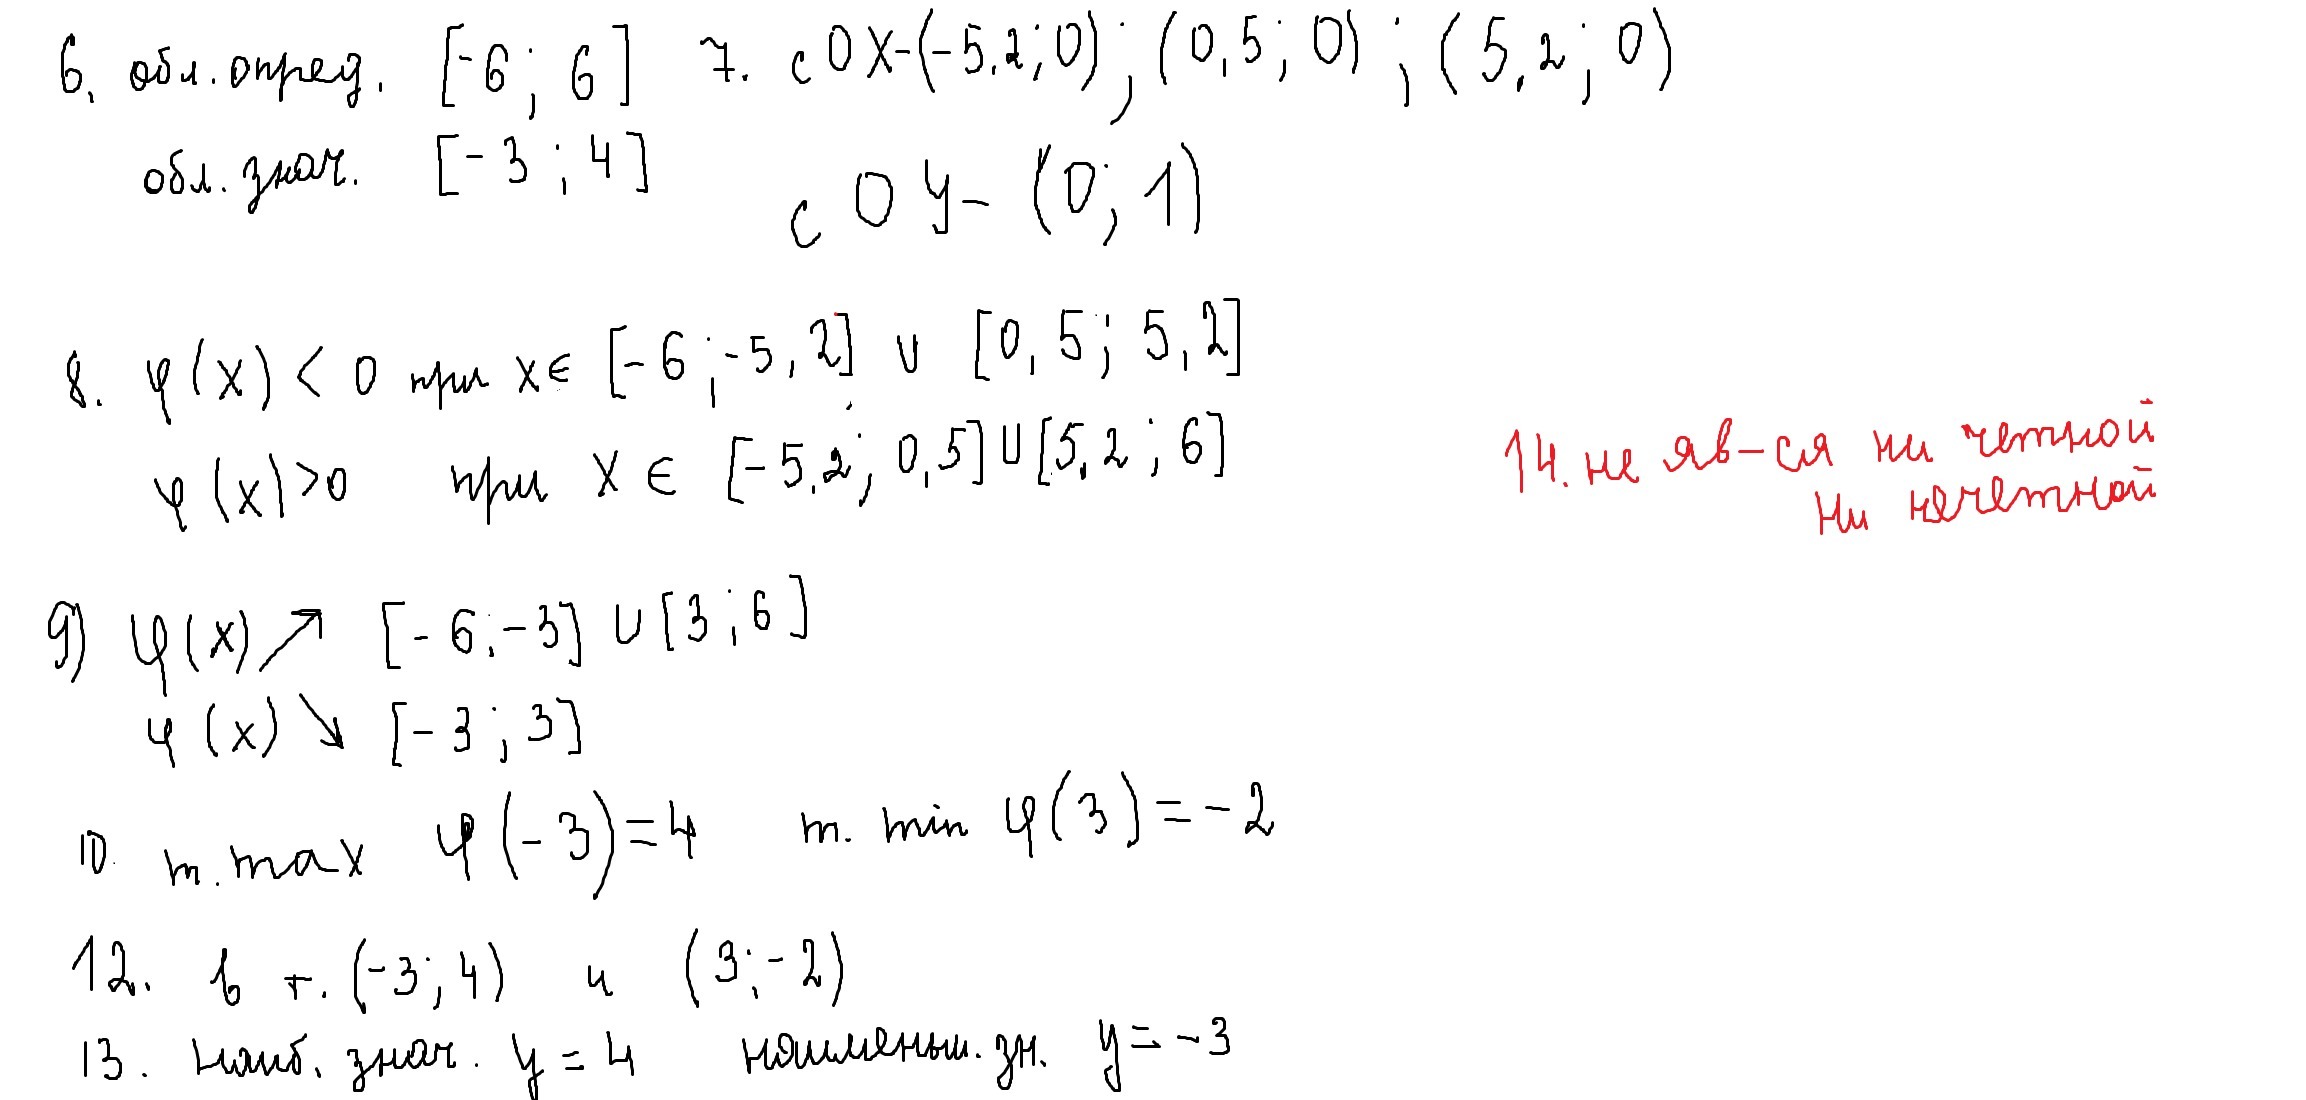 6. обл. опред. [-6; 6] 7. с OX-(-5,2; 0); (0,5; 0); (5,2; 0)
обл. знач. [-3; 4]
с OY- (0; 1)
8. φ(x) < 0 при x∈ [-6; -5,2] ∪ [0,5; 5,2]
φ(x)>0 при X ∈ [-5,2; 0,5]∪[5,2; 6]
14. не яв-ся ни четной
ни нечетной
9) φ(x)↗ [-6;-3] ∪ [3; 6]
φ(x)↘ [-3; 3]
10. т. max φ(-3)=4 т. min φ(3)=-2
12. в т. (-3; 4) и (3; -2)
13. наиб. знач. y=4 наименьш. зн. y=-3